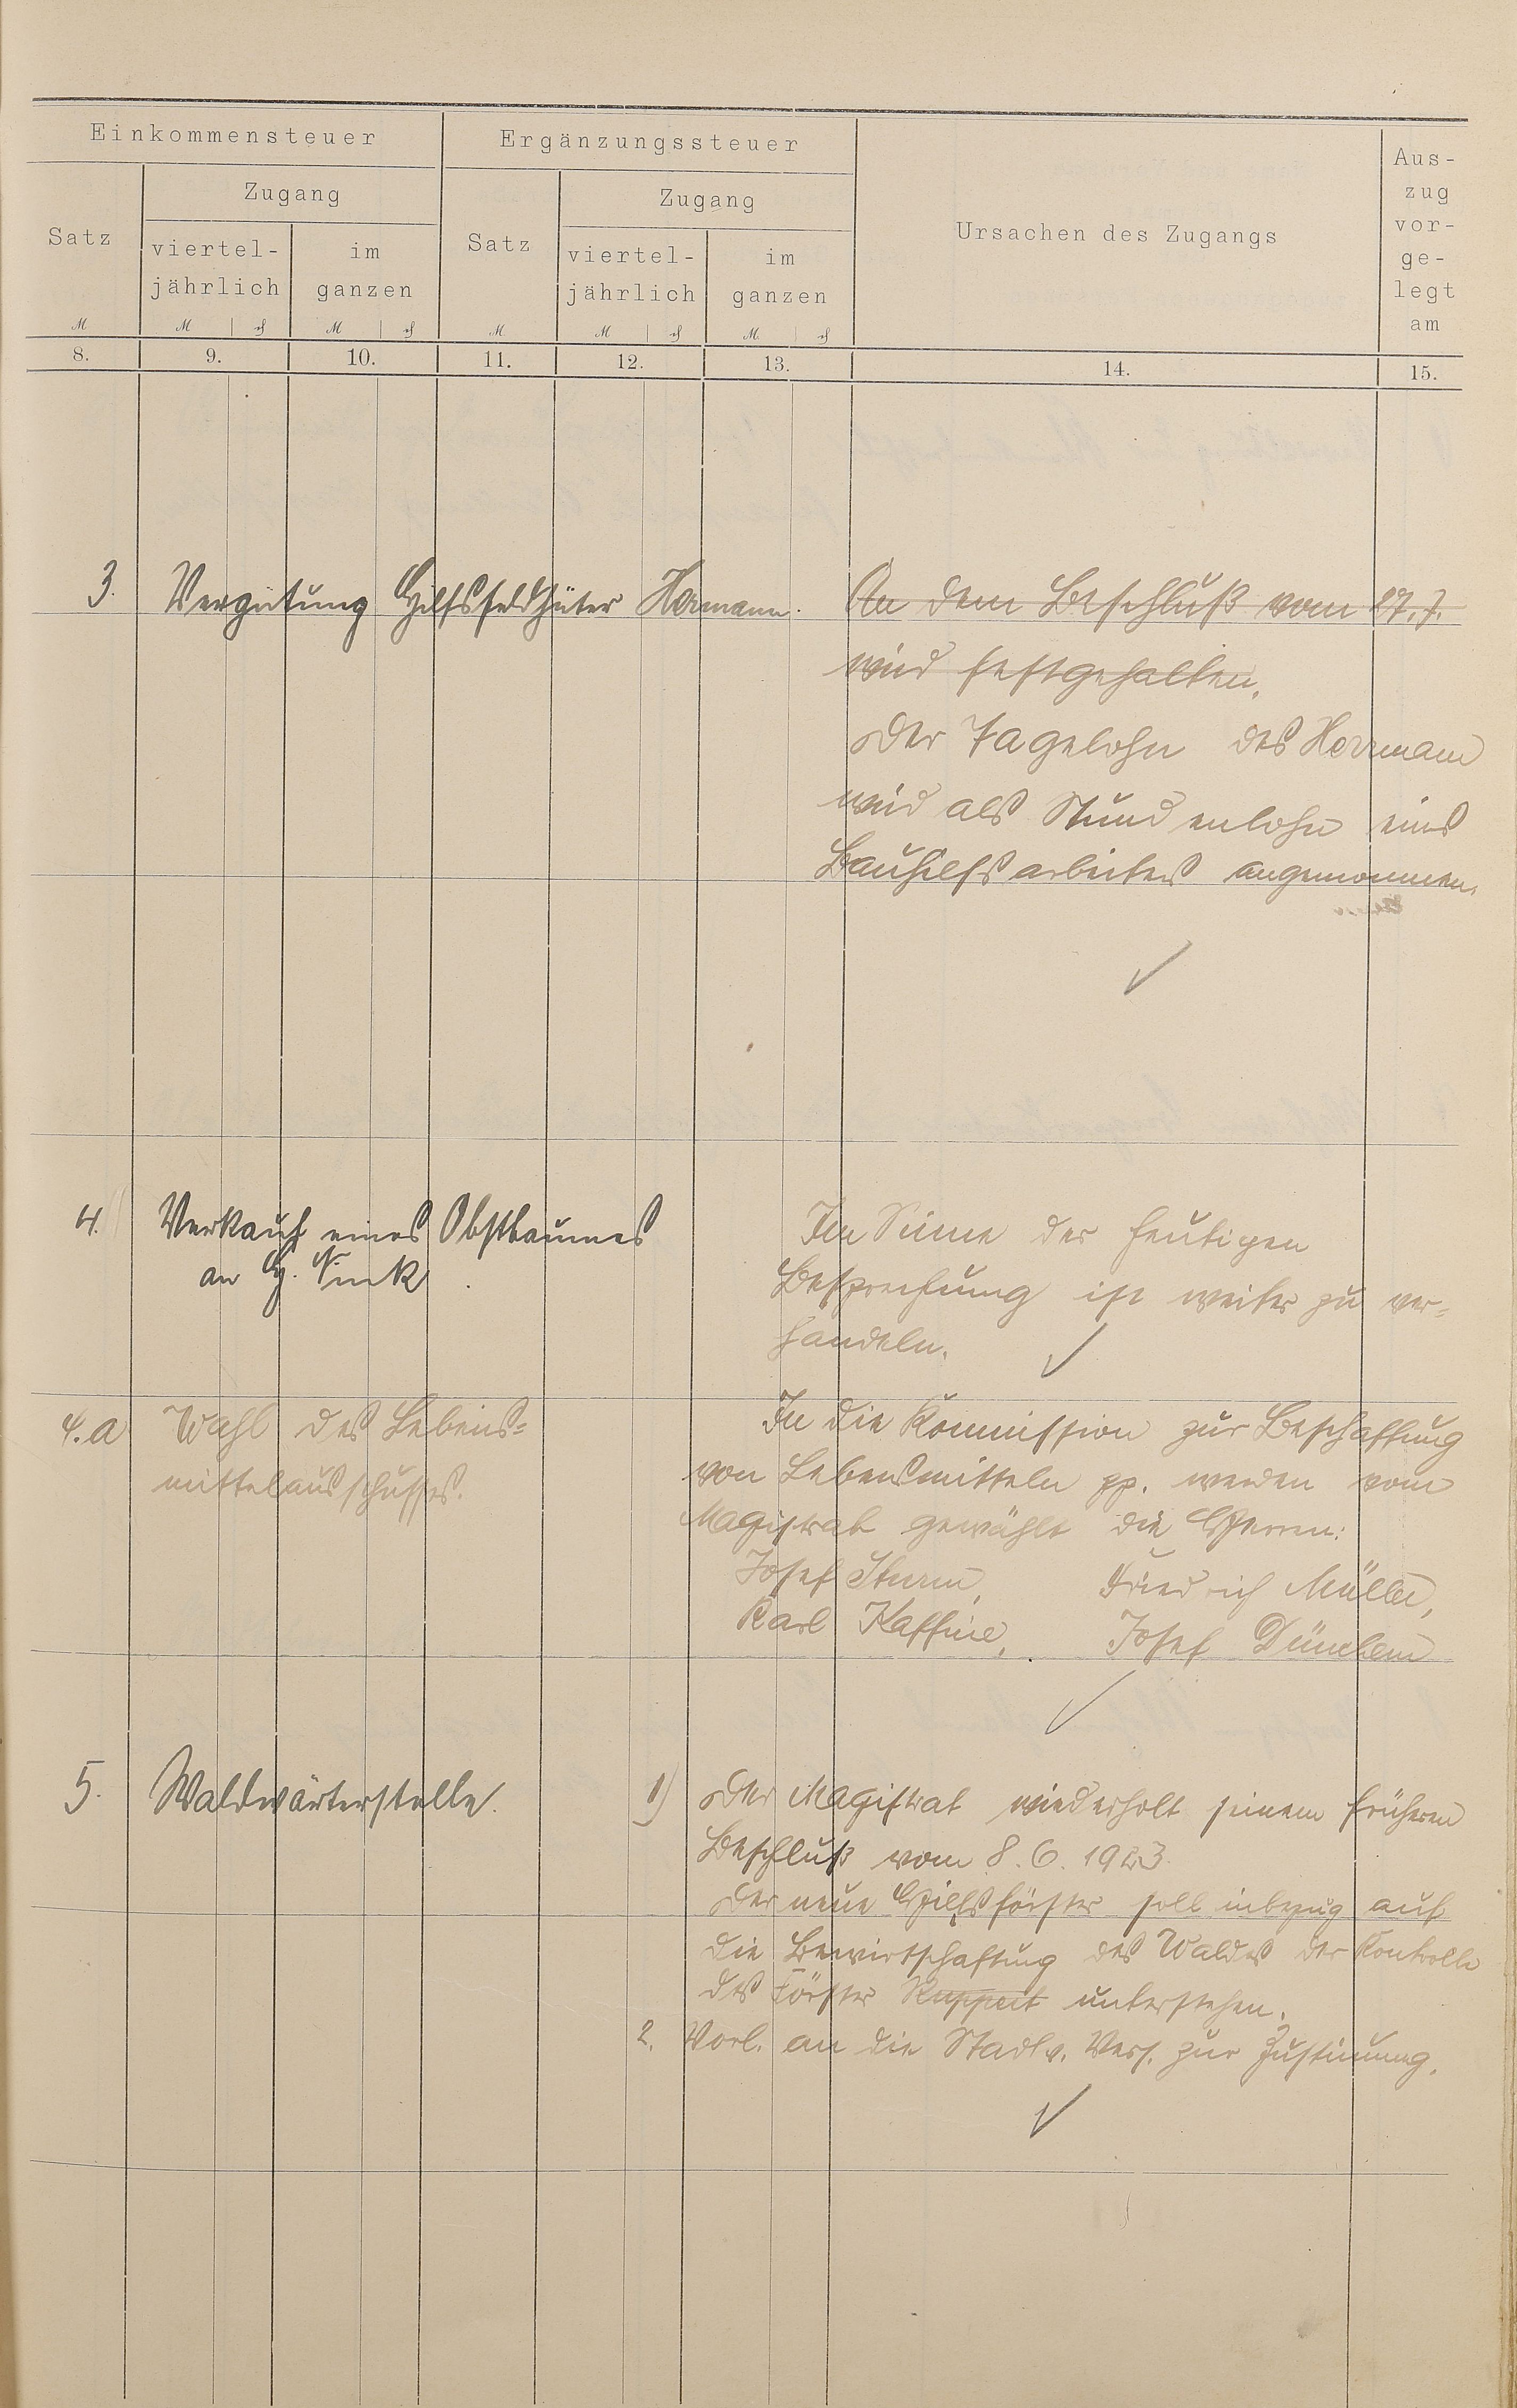 Einkommensteuer
Ergänzungssteuer
Ursachen des Zugangs
Aus-
zug
vor-
ge-
legt
am
Satz
Zugang
viertel-
jährlich
im
ganzen
Satz
Zugang
viertel-
jährlich
im
ganzen
M M ₰ M ₰ M M ₰ M ₰
8. 9. 10. 11. 12. 13. 14. 15.
3. Vergütung Hilfsfeldhüter Hermann.
An dem Beschluß vom 27.7.
wird festgehalten.
Der Tagelohn des Hermann
wird als Stundenlohn eines
Bauhilfsarbeiters angenommen.
4. Verkauf eines Obstbaumes
an G. Fink.
Im Sinne der heutigen
Besprechung ist weiter zu ver=
handeln.
4.a Wahl des Lebens=
mittelausschusses.
In die Kommission zur Beschaffung
von Lebensmitteln pp. werden vom
Magistrat gewählt die Herren:
Josef Sturm, Friedrich Müller,
Karl Kaffine, Josef
5. Waldwärterstelle.
1) Der Magistrat wiederholt seinem früheren
Beschluß vom 8.6.1923.
Der neue Hilfsförster soll inbezug auf
die Bewirtschaftung des Waldes der Kontrolle
des Förster Ruppert unterstehen.
2. Vorl. an die Stadtv. Vers. zur Zustimmung.